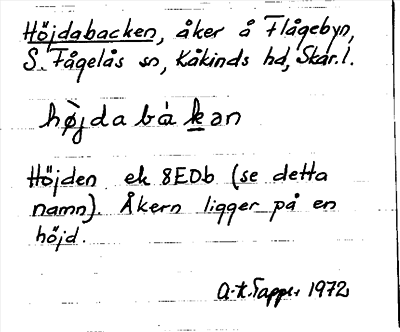 Höjdabacken, åker å Flågebyn,
S. Fågelås sn, Kåkinds hd, Skar. l.
hø̀jdabákan
Höjden ek 8E0b (se detta
namn). Åkern ligger på en
höjd.
A-K. Tapper 1972